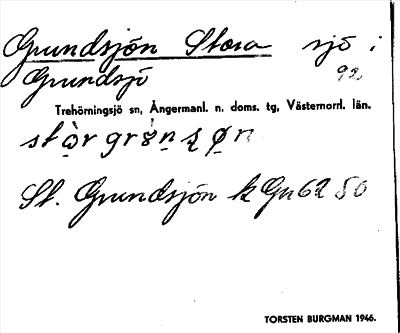 Grundsjön Stora sjö i
Grundsjö 92
Trehörningsjö sn, Ångermanl. n. doms. tg, Västernorrl. län.
St. Grundsjön k Gu 62 S0
TORSTEN BURGMAN 1946.